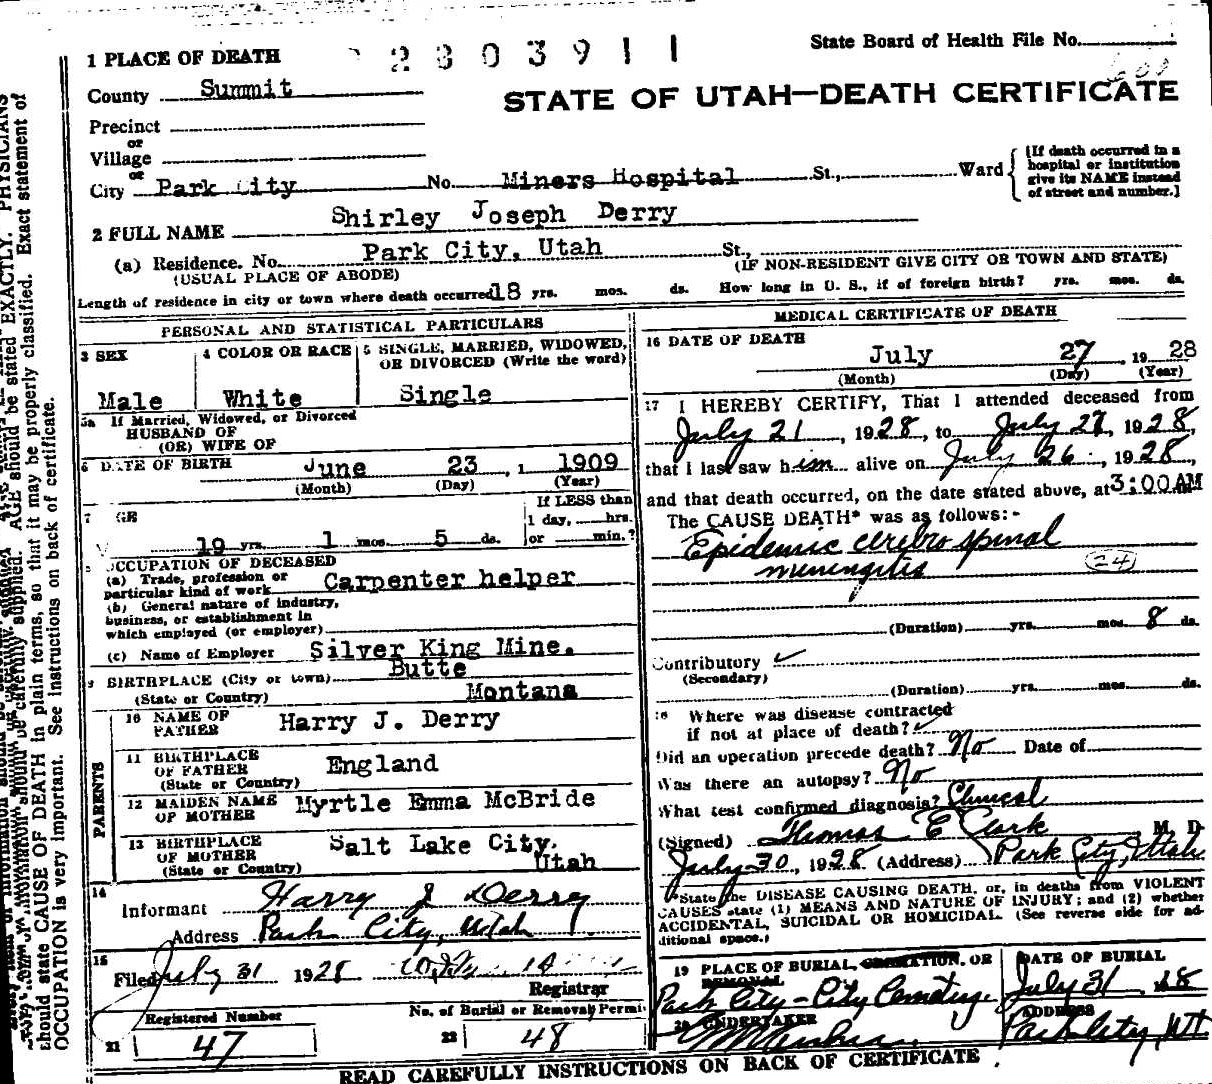 State Board of Health File No.
2303911
STATE OF UTAH—DEATH CERTIFICATE
1 PLACE OF DEATH
County Summit
Precinct
or
Village
or
City Park City No. Miners Hospital St., Ward
[If death occurred in a hospital or institution give its NAME instead of street and number.]
2 FULL NAME Shirley Joseph Derry
(a) Residence. No. Park City, Utah St.,
(USUAL PLACE OF ABODE) (IF NON-RESIDENT GIVE CITY OR TOWN AND STATE)
Length of residence in city or town where death occurred 18 yrs. mos. ds. How long in U. S., if of foreign birth? yrs. mos. ds.
PERSONAL AND STATISTICAL PARTICULARS
3 SEX
Male
4 COLOR OR RACE
White
5 SINGLE, MARRIED, WIDOWED,
OR DIVORCED (Write the word)
Single
5a If Married, Widowed, or Divorced
HUSBAND OF
(OR) WIFE OF
6 DATE OF BIRTH June 23, 1 1909
(Month) (Day) (Year)
7 GE
19 yrs. 1 mos. 5 ds.
If LESS than
1 day, hrs.
or min.?
OCCUPATION OF DECEASED
(a) Trade, profession or
particular kind of work Carpenter helper
(b) General nature of industry,
business, or establishment in
which employed (or employer)
(c) Name of Employer Silver King Mine.
9 BIRTHPLACE (City or town) Butte
(State or Country) Montana
PARENTS
10 NAME OF
FATHER Harry J. Derry
11 BIRTHPLACE
OF FATHER England
(State or Country)
12 MAIDEN NAME
OF MOTHER Myrtle Emma McBride
13 BIRTHPLACE
OF MOTHER Salt Lake City,
(State or Country) Utah
14
Informant Harry J Derry
Address Park City, Utah
15
Filed July 31 1928
Registrar
Registered Number
21 47
No. of Burial or Removal Permi
22 48
MEDICAL CERTIFICATE OF DEATH
16 DATE OF DEATH
July 27, 19 28
(Month) (Day) (Year)
17 I HEREBY CERTIFY, That I attended deceased from
July 21, 1928, to July 27, 1928,
that I last saw him alive on July 26, 1928,
and that death occurred, on the date stated above, at 3:00 AM
The CAUSE DEATH* was as follows:-
Epidemic cerebro spinal
meningitis (24)
(Duration) yrs. mos. 8 ds.
Contributory
(Secondary)
(Duration) yrs. mos. ds.
18 Where was disease contracted
if not at place of death?
Did an operation precede death? No Date of
Was there an autopsy? No
What test confirmed diagnosis? Clinical
(Signed) Thomas E Clark M. D
July 30, 1928 (Address) Park City, Utah
*State the DISEASE CAUSING DEATH, or, in deaths from VIOLENT
CAUSES state (1) MEANS AND NATURE OF INJURY; and (2) whether
ACCIDENTAL, SUICIDAL OR HOMICIDAL. (See reverse side for ad-
ditional space.)
19 PLACE OF BURIAL, CREMATION, OR
REMOVAL
Park City - City Cemetery.
DATE OF BURIAL
July 31, 28
20 UNDERTAKER
ADDRESS
Park City, Ut
READ CAREFULLY INSTRUCTIONS ON BACK OF CERTIFICATE
should state CAUSE OF DEATH in plain terms, so that it may be properly classified. Exact statement of
OCCUPATION is very important. See instructions on back of certificate.